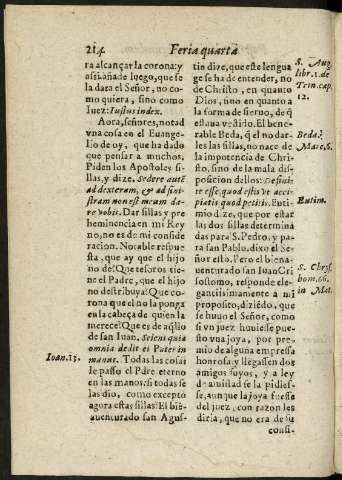 214 Feria quarta
ra alcançar la corona: y
assi añade luego, que se
la dara el Señor, no co-
mo quiera, sino como
Iuez: Iustus index.
Aora, señores, notad
vna cosa en el Euange-
lio de oy, que ha dado
que pensar a muchos.
Piden los Apostoles si-
llas, y dize. Sedere autē
ad dexteram, & ad sini-
stram non est meum da-
re vobis. Dar sillas y pre
heminencia en mi Rey
no, no es de mi conside
racion. Notable respue
sta, que ay que el hijo
no dè? Que tesoros tie-
ne el Padre, que el hijo
no destribuya? Que co-
rona que el no la ponga
en la cabeça de quien la
merece? Que es de aq̃llo
de san Iuan. Sciens quia
omnia dedit ei Pater in
Ioan. 13.
manus. Todas las cosas
le passo el Pdre eterno
en las manos: si todas se
las dio, como exceptò
agora estas sillas? El biē-
auenturado san Agus-
tin dize, que este lengua
ge se ha de entender, no
de Christo, en quanto
Dios, sino en quanto a
la forma de sieruo, de q̃
estaua vestido. El bene-
rable Beda, q̃ el no dar-
les las sillas, no nace de
la impotencia de Chri-
sto, sino de la mala dis-
posicion dellos: Desinite
esse quod estis vt acci-
piatis quod petitis. Euti-
mio dize, que por estar
las dos sillas determina
das para S. Pedro, y pa-
ra san Pablo, dixo el Se-
ñor esto. Pero el biena-
uenturado san Iuan Cri
sostomo, responde ele-
gantissimamente a mi
proposito, diziēdo, que
se huuo el Señor, como
si vn juez huuiesse pue-
sto vna joya, por pre-
mio de alguna empressa
honrosa: y llegassen dos
amigos suyos, y a ley
de amistad se la pidies-
se, aunque la joya fuesse
del juez, con razon les
diria, que no era de su
consi-
S. Aug.
libr. 1. de
Trin. cap.
12.
Beda.
Marc. 6.
Eutim.
S. Chrys.
hom. 66.
in Mat.